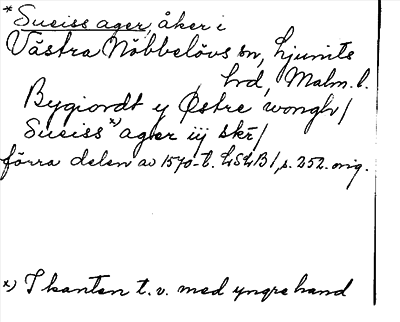 * Sueiss ager, åker i
Västra Nöbbelövs sn, Ljunits
hrd, Malm. l.
Bygiordt y Østre wongh/
Sueiss *) ager iij skr/
förra delen av 1570-t. LSLB1, s. 252. orig.
x) I kanten t. v. med yngre hand